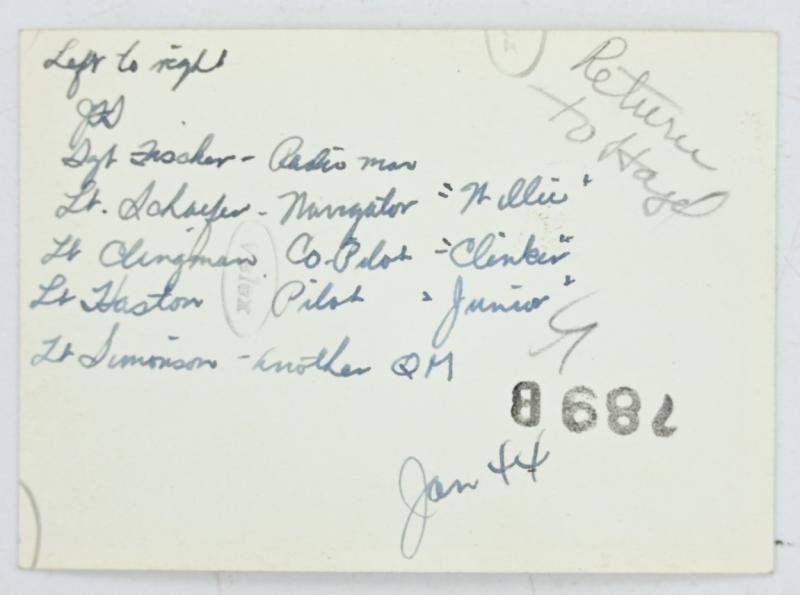 Left to right
Return
to Hazel
Sgt Fischer - Radio man
Lt. Schaefer - Navigator "Willie"
Lt Clingman Co-Pilot - "Clinker"
Lt Haston Pilot "Junior"
Lt Simonson - Another QM
789B
Jan 44
Velox